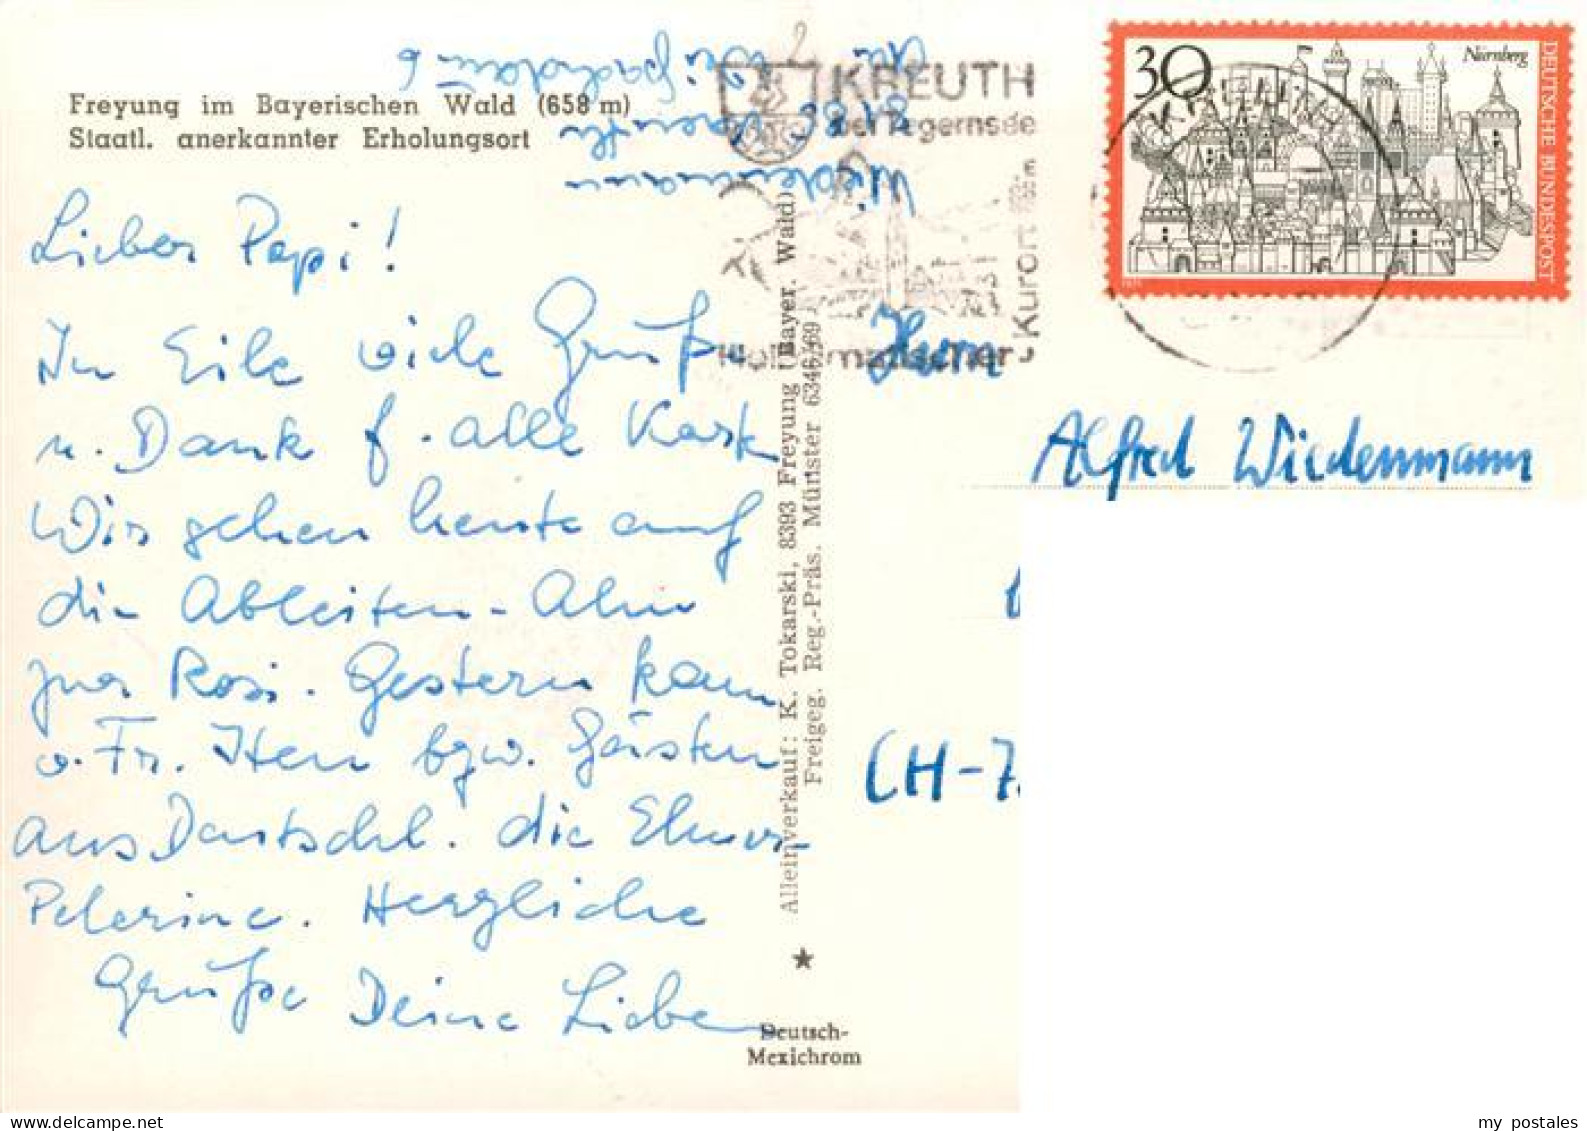 Freyung im Bayerischen Wald (658 m)
Staatl. anerkannter Erholungsort
Wiedenmann
Lieber Papi!
In Eile viele Grüße
u. Dank f. alle Karten
Wir gehen heute auf
die Ableiten-Alm
zur Rosi. Gestern kam
v. Fr. Iten bzw. Gästen
aus Deutschl. die
Pelerine. Herzliche
Grüße Deine Lieben
Alleinverkauf: K. Tokarski, 8393 Freyung (Bayer. Wald)
Freigeg. Reg.-Präs. Münster 6346/69
Deutsch-
Mexichrom
KREUTH
bei Tegernsee
Kurort
30
Nürnberg
DEUTSCHE BUNDESPOST
Herrn
Alfred Wiedenmann
(CH-7
my postales